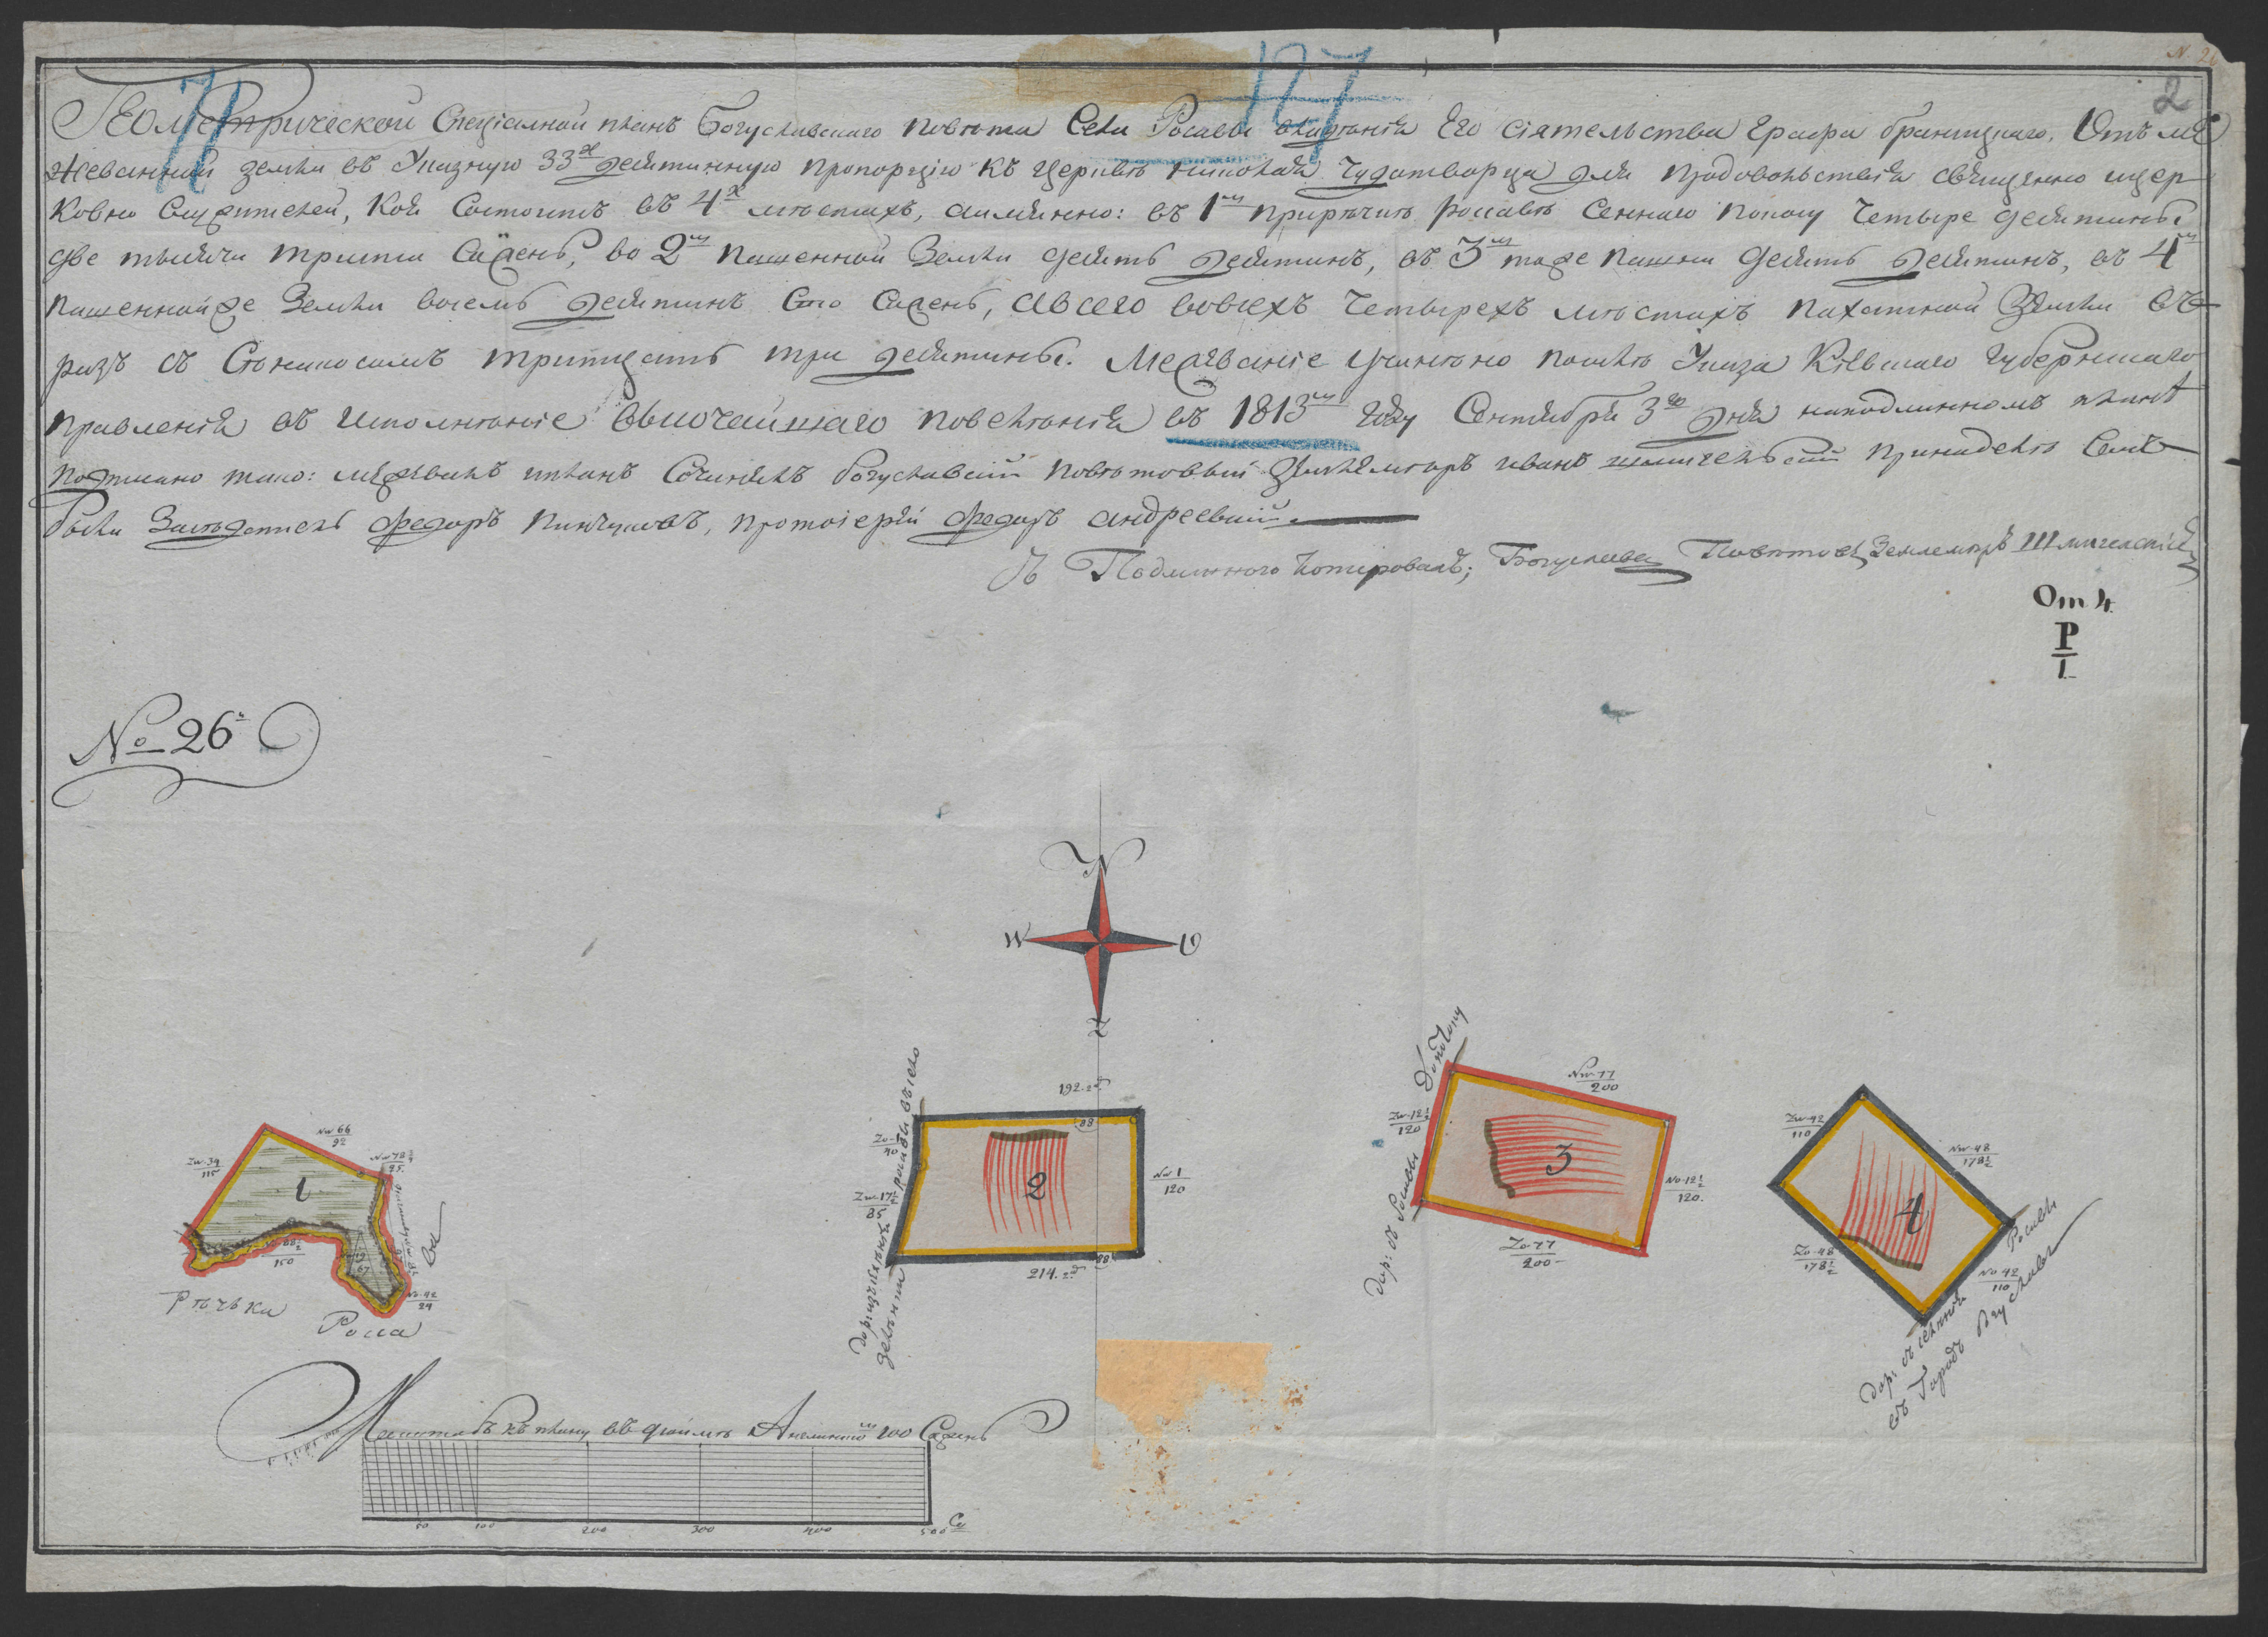 N. 26
2
77
127
Геометрической Специалной планъ Богуславскаго повѣта Села Росавы владѣнія Его сіятельства графа браницкаго. Отъ ме
жеванной земли въ Указную 33х десятинную пропорцію къ церквѣ николая чудотворца для продовольствія священно ицер
ковно служителей, кои состоитъ въ 4х мѣстахъ, аимянно: въ 1м прирѣчитѣ росавѣ сеннаго покосу четыре десятины
две тысячи триста сажень, во 2м пашенной земли десять десятинъ, въ 3м тоже пашни десять десятинъ, въ 4м
пашенной же земли восемъ десятинъ сто сажень, авсего вовсехъ четырехъ мѣстахъ пахатной земли съ
разъ съ сѣнокосомъ тритцать три десятины. Межеваніе учинѣно послѣ Указа Кіевскаго губернскаго
правленія въ исполнѣніе высочайшаго повелѣнія въ 1813м году Сентября 3го дня наподлинномъ планѣ
подписано тако: межевалъ ипланъ сочинялъ богуславскій повѣтовый землемѣръ иванъ шмигельскій принадело семъ
были засѣдатель федоръ пинчуковъ, протоіерей федоръ андреевскій.
Съ Подлинного копировалъ; Богуславск Повѣтовой Землемѣръ Шмигельскій
От 4.
Р
1
No 26
N
W O
Z
192. 2
88
Zo-1
40
Zw-17½
85
Nw 1
120
2
214. 2
88
дор: изъ селенія росавы въ село
Nw 77
200
Zw-12½
120
3
No-12½
120.
Zo-77
200
дор: съ Росавы
Zw-42
110
Nw-48
178½
4
Zo-48
178½
No 42
110
дор: съ селенія Росавы
въ городъ Богуславъ
Nw 66
92
Zw-34
115
Nw 78¾
25.
1
150
67
No-42
24
Рѣчька Росса ва
Масштабъ къ плану въ дюймѣ Английском 100 Сажень
50 100 200 300 400 500 Са